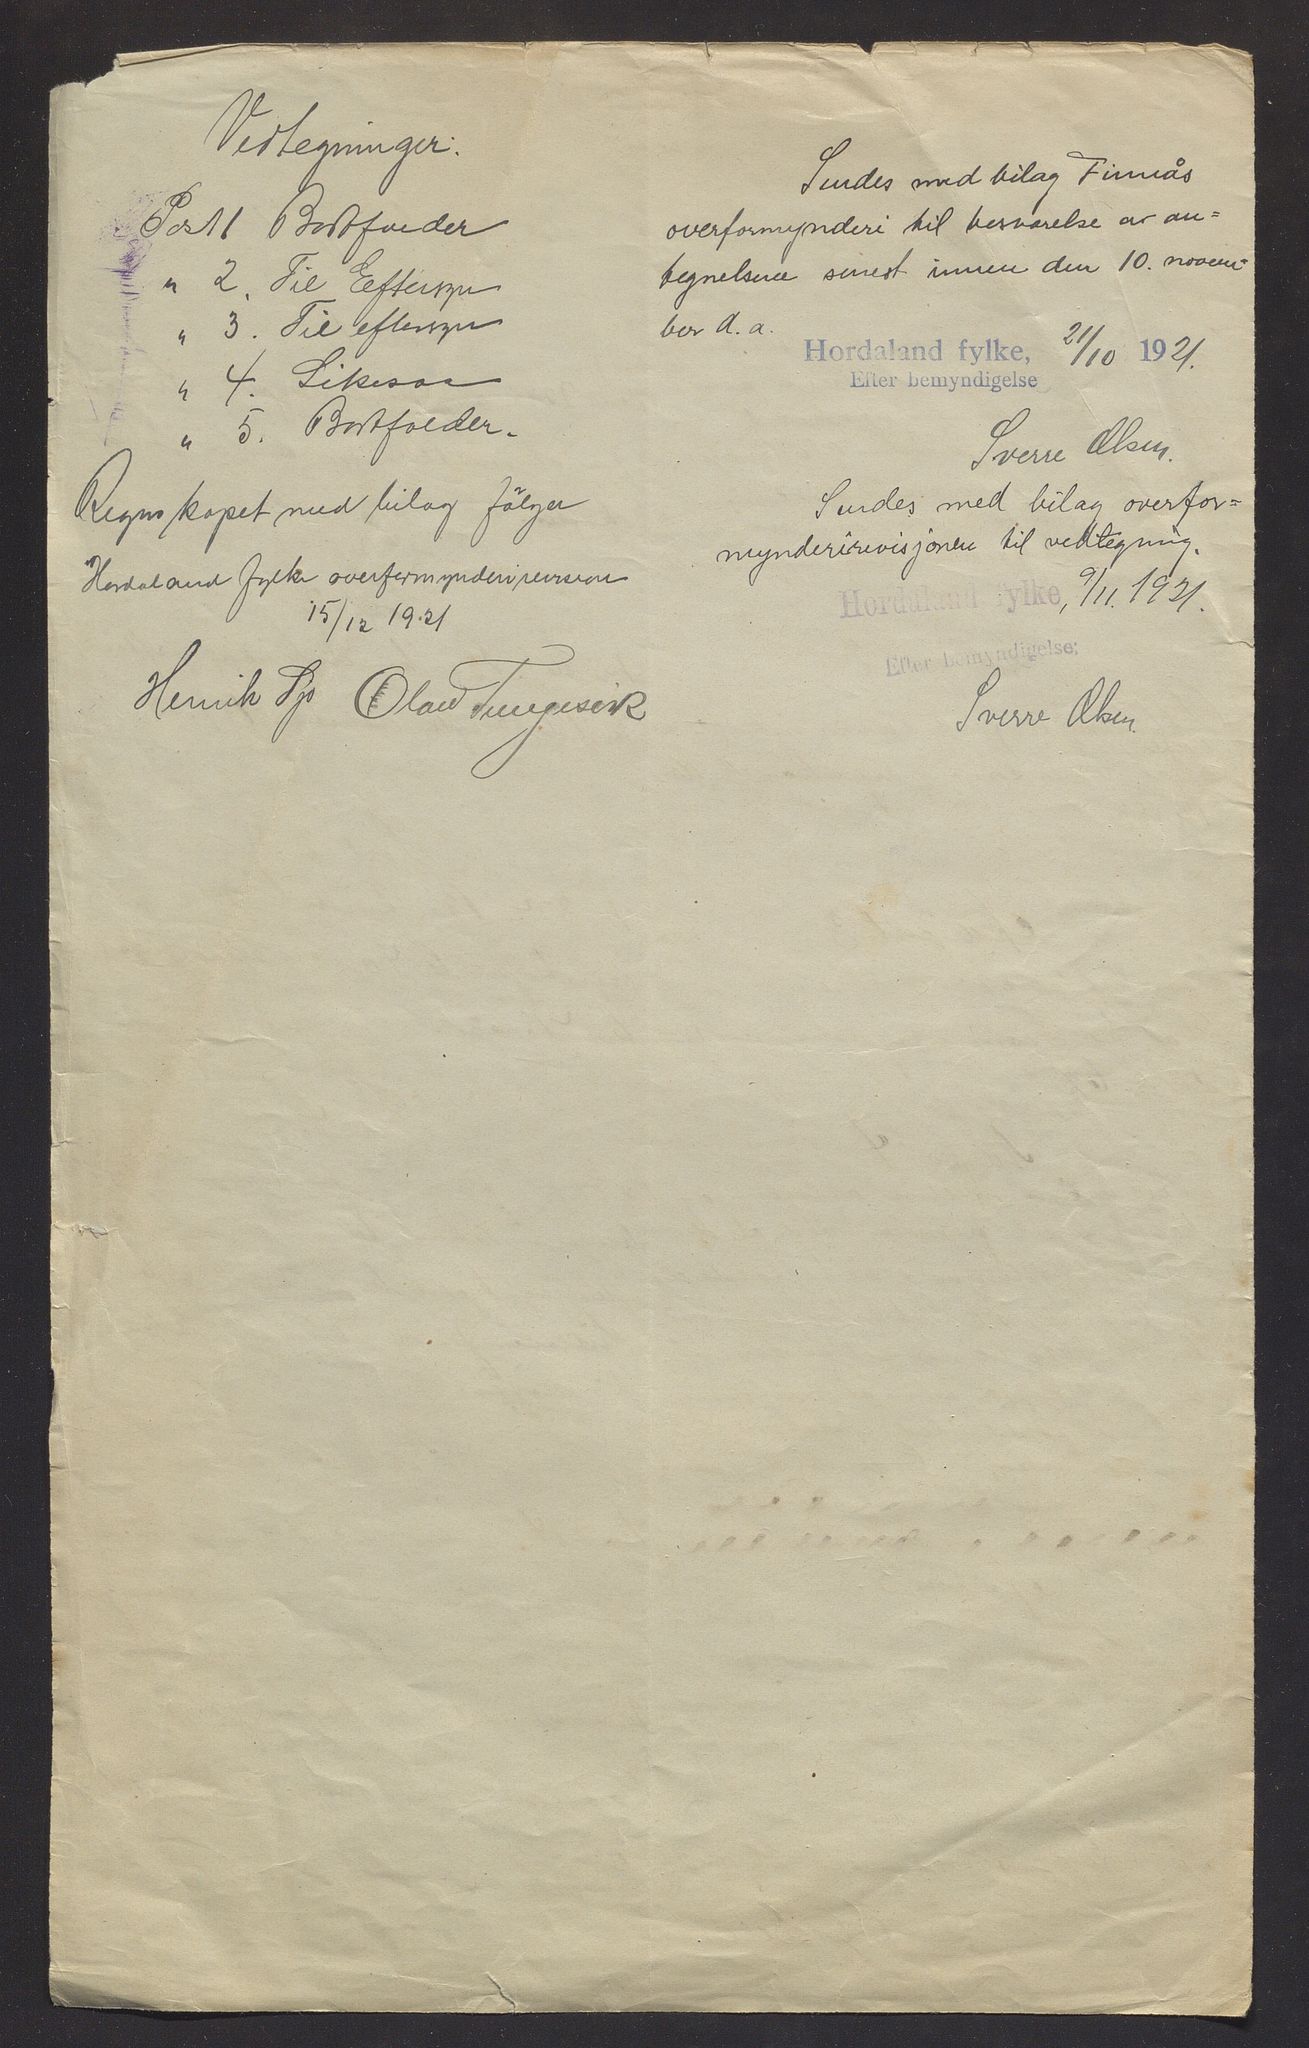 Vedtegninger:
Post 1 Bortfalder
" 2. Til Eftersyn
" 3. Til eftersyn
" 4. Likesaa
" 5. Bortfalder.
Regnskapet med bilag följer
Hordaland fylke overformynderirevision
15/12 19.21
Henrik Olav
Sendes med bilag Finnås
overformynderi til besvarelse av an=
tegnelsene senest innen den 10. novem=
ber d. a.
Hordaland fylke, 21/10 1921.
Efter bemyndigelse
Sverre Olsen.
Sendes med bilag overfor=
mynderirevisjonen til vedtegning.
Hordaland fylke, 9/11. 1921.
Efter bemyndigelse:
Sverre Olsen.